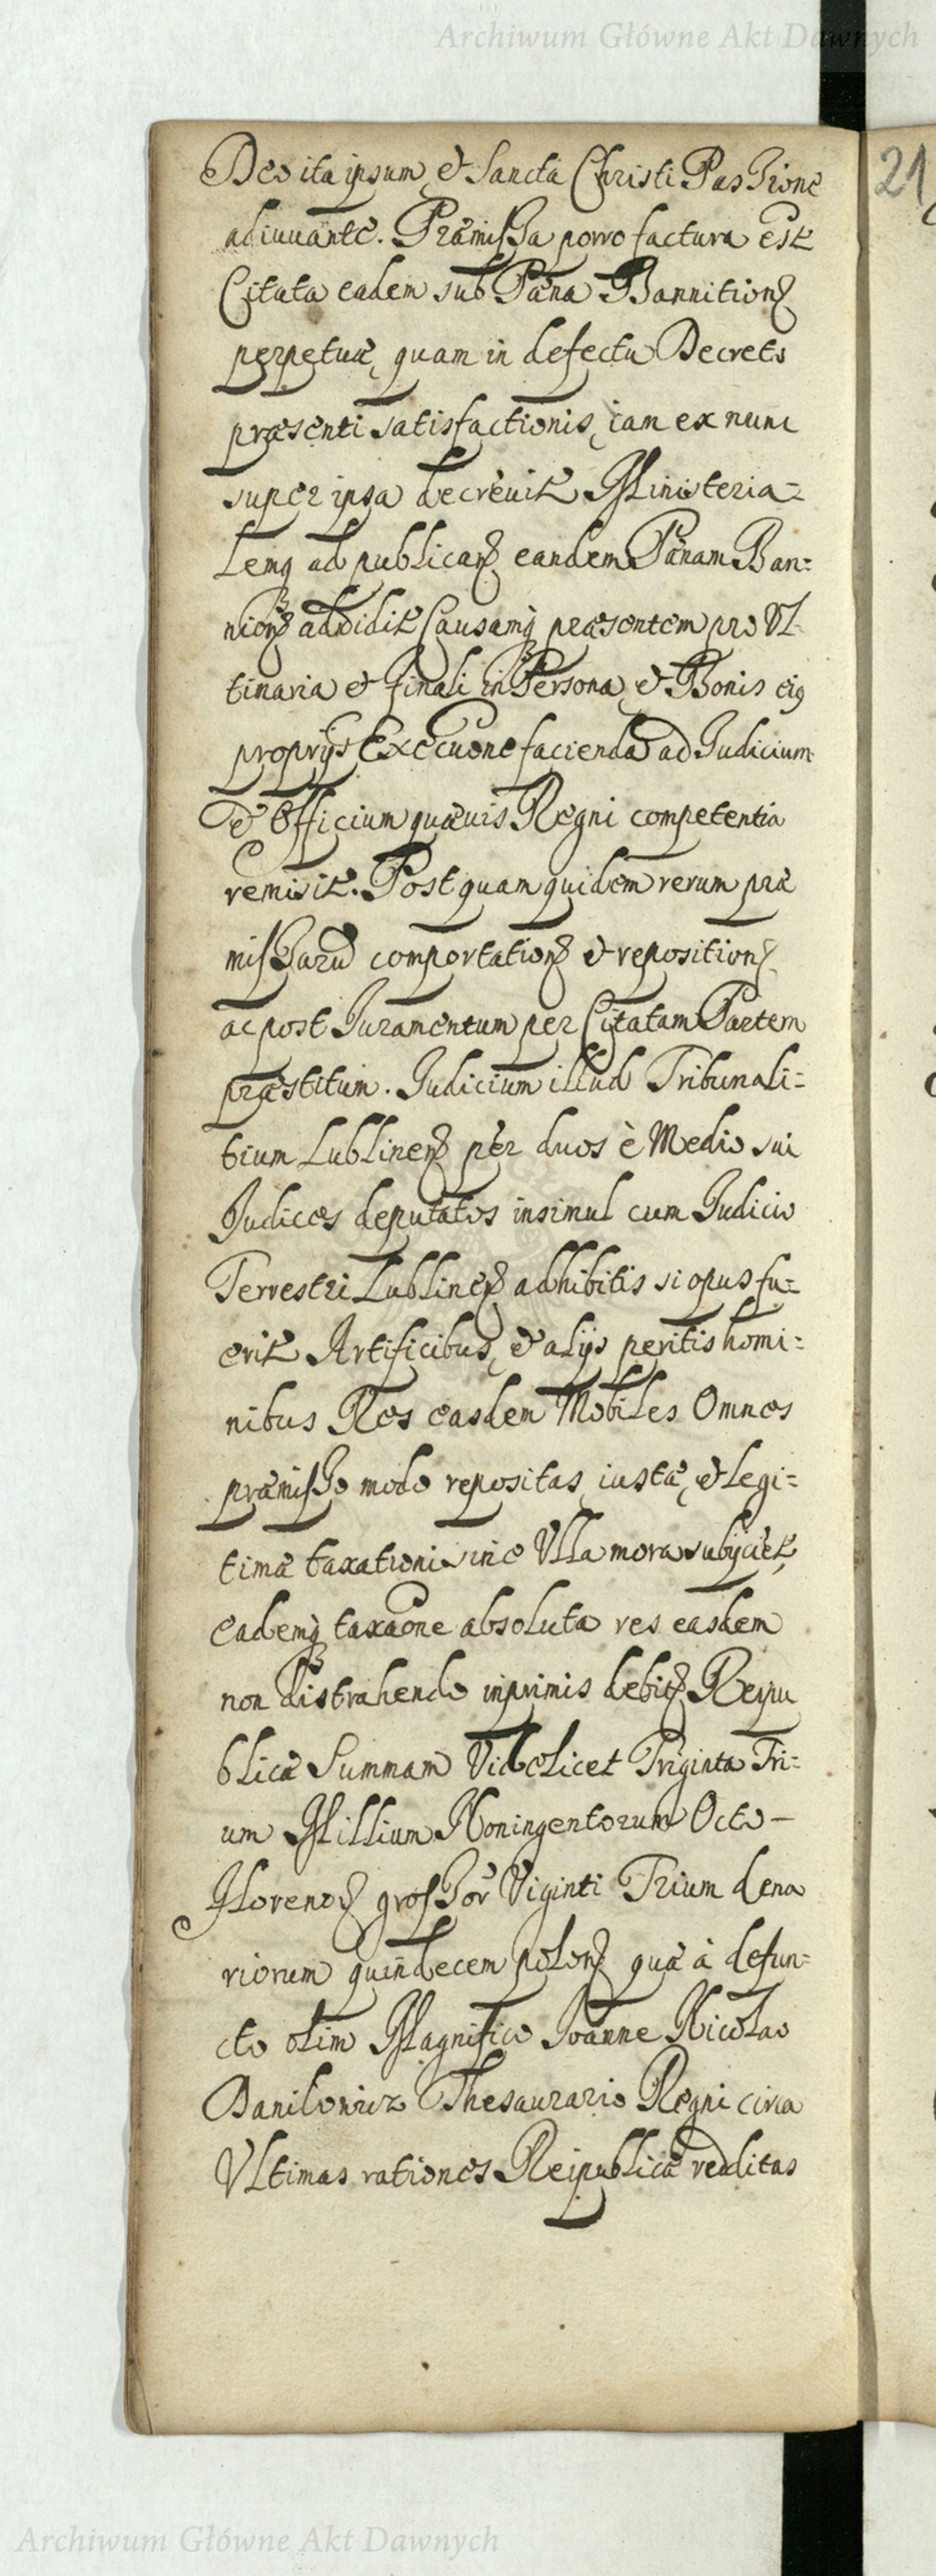 Archiwum Główne Akt Dawnych
21
Deo ita ipsum, et Sancta Christi Passione
adiuuante. Præmissa porro factura est
Citata eadem sub Pæna Bannition
perpetuæ, quam in defectu Decreto
præsenti satisfactionis, iam ex nunc
super ipsa decreuit Ministeria=
lemq ad publican eandem Pænam Ban=
nion addidit Causamq præsentem pro Vl
timaria et finali in Persona, et Bonis eiq
proprijs Execuone facienda ad Judicium
et Officium quæuis Regni competentia
remisit. Post quam quidem rerum præ
missarū comportation et reposition
ac post Juramentum per Citatam Partem
præstitum. Judicium illud Tribunali=
tium Lublinen per duos è Medio sui
Judices deputatos insimul cum Judicio
Terrestri Lublinen adhibitis si opus fu=
erit Artificibus, et alijs peritis homi=
nibus Res easdem Mobiles Omnes
præmisso modo repositas, iustæ, et legi=
timæ taxationi sine Vlla mora subijciet,
eademq taxaone absoluta res easdem
non distrahendo inprimis debit Reipu
blicæ Summam Videlicet Triginta Tri=
um Millium Noningentorum Octo—
Florenor grossor Viginti Trium dena
riorum quindecem polon quæ à defun=
cto olim Magnifico Joanne Nicolao
Danilowicz Thesaurario Regni circa
Vltimas rationes Reipublicæ redditas
Archiwum Główne Akt Dawnych